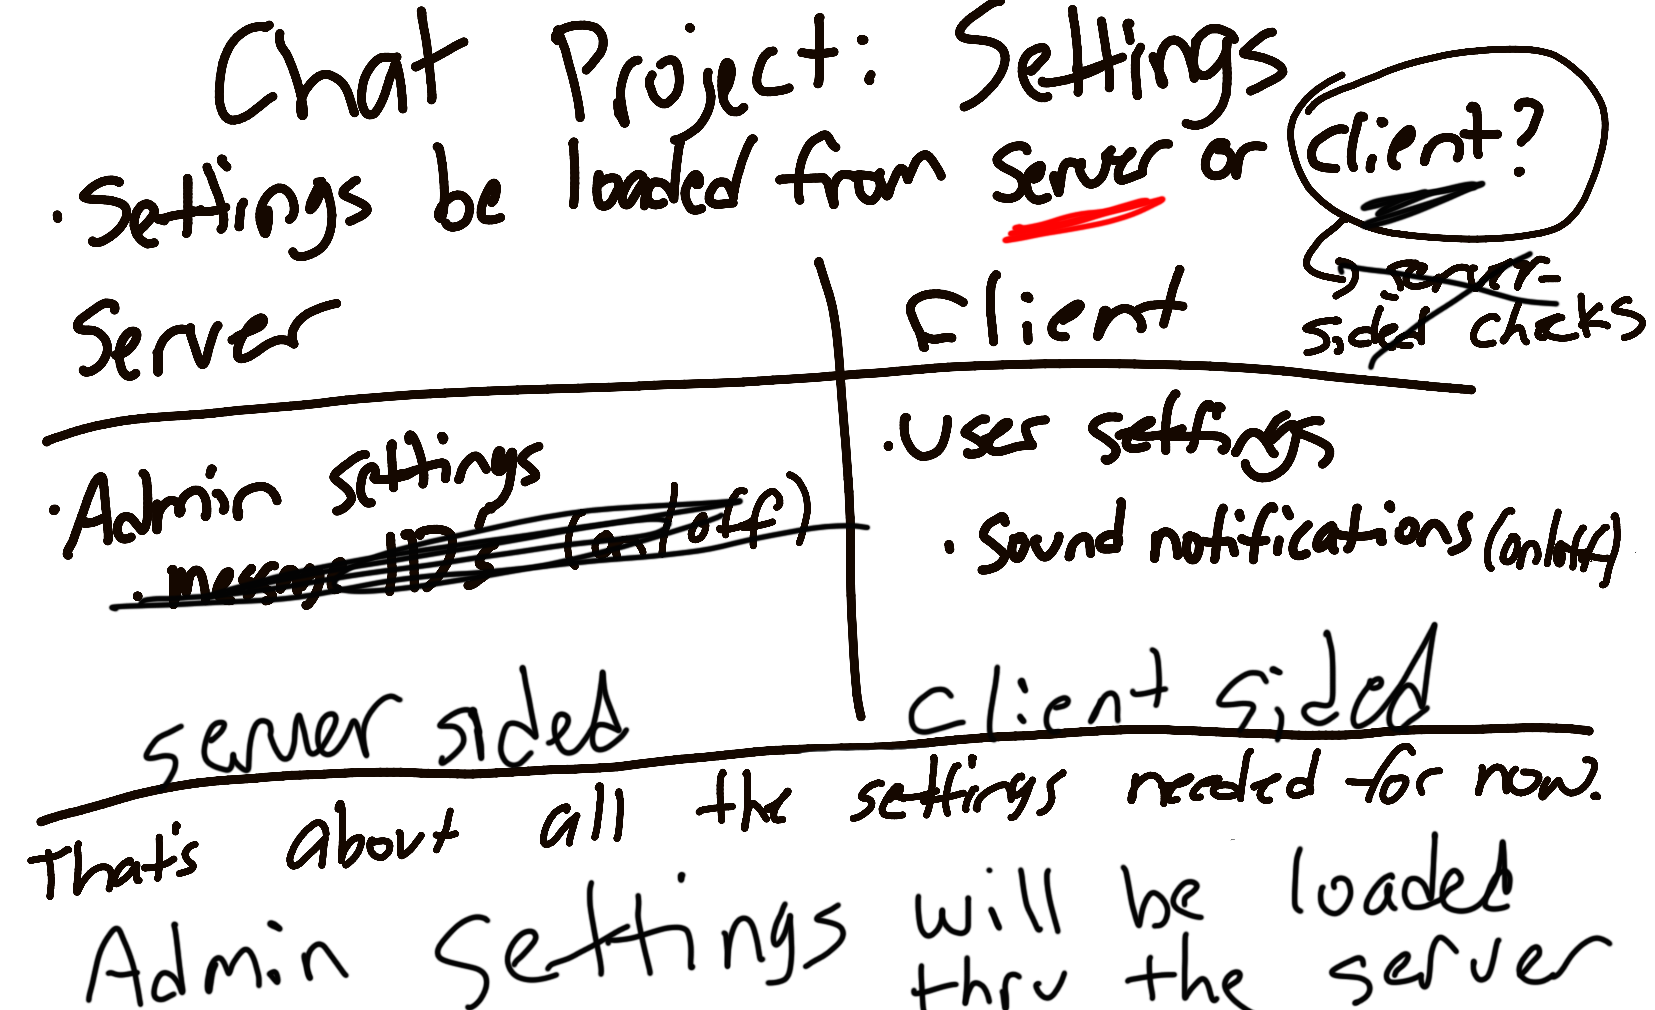 Chat Project: Settings
· Settings be loaded from server or client?
server-
sided checks
Server
Client
· Admin settings
· message IDs (on/off)
· User settings
· Sound notifications (on/off)
server sided
client sided
That's about all the settings needed for now.
Admin settings will be loaded
thru the server